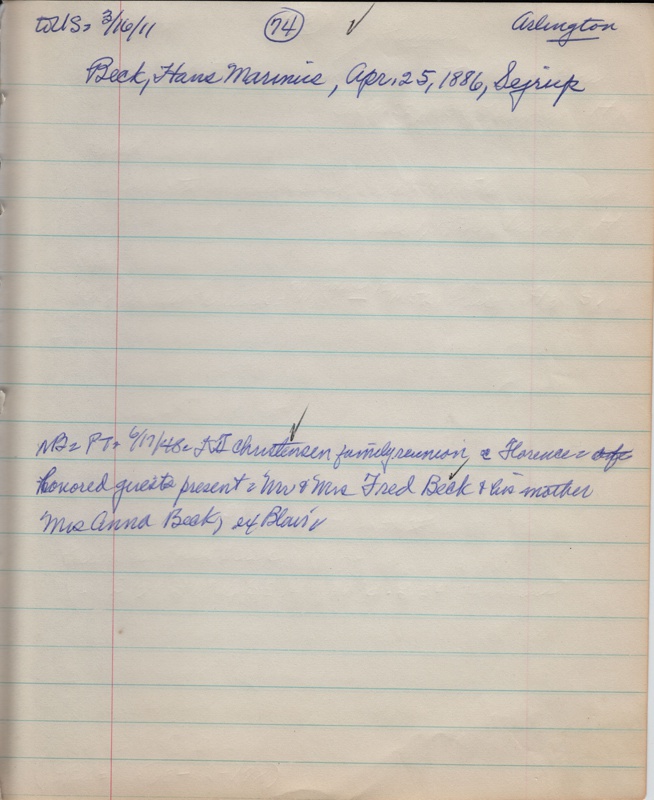 to US = 3/16/11 74 ✓ Arlington
Beck, Hans Marinus, Apr. 25, 1886, Sejrup
NB = PT + 6/17/48 = Christensen family reunion, @ Florence =
honored guests present = Mr & Mrs Fred Beck & his mother
Mrs Anna Beck, of Blair